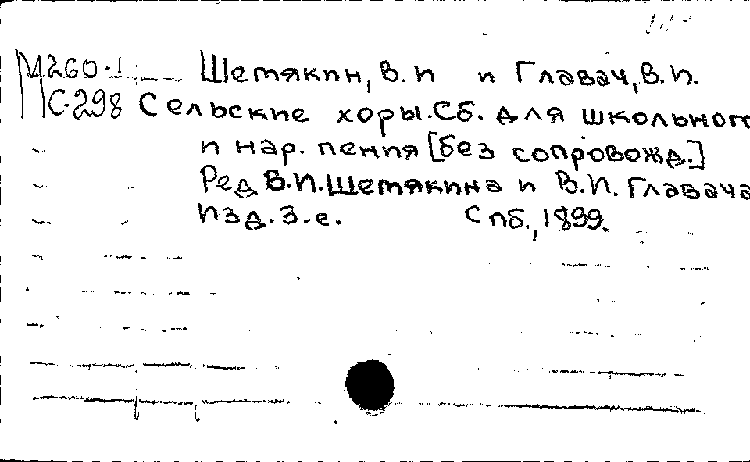 М260-1 Шетякин, В. П и Главач, В. И.
С-298 Сельские хоры. Сб. для школьного
и нар. пения [без сопровожд.]
Ред В. П. Шетякина и В. И. Главача
Изд. 3-е. Спб., 1899.